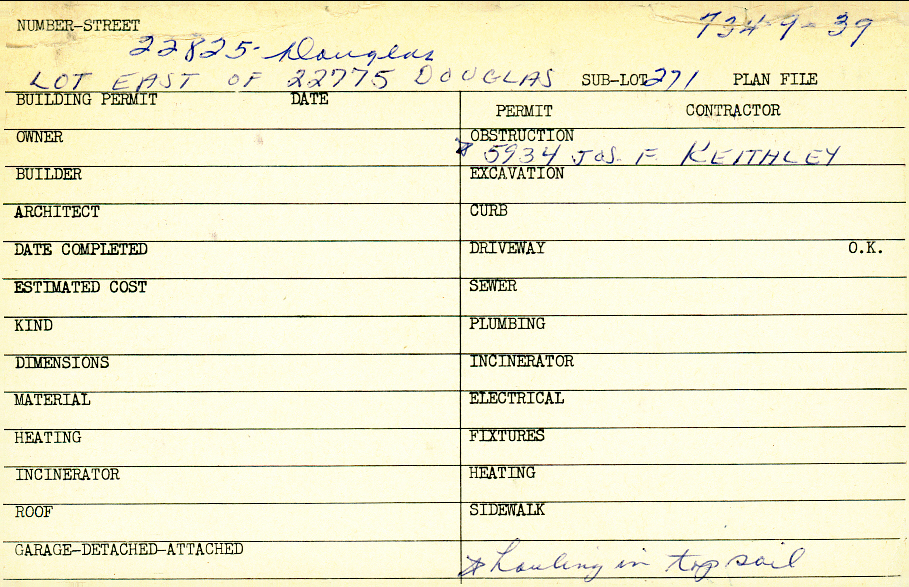 NUMBER-STREET 734-9-39
22825- Douglas
LOT EAST OF 22775 DOUGLAS SUB-LOT 271 PLAN FILE
BUILDING PERMIT DATE
PERMIT CONTRACTOR
OWNER
OBSTRUCTION
* 5934 JOS. F. KEITHLEY
BUILDER
EXCAVATION
ARCHITECT
CURB
DATE COMPLETED
DRIVEWAY O.K.
ESTIMATED COST
SEWER
KIND
PLUMBING
DIMENSIONS
INCINERATOR
MATERIAL
ELECTRICAL
HEATING
FIXTURES
INCINERATOR
HEATING
ROOF
SIDEWALK
GARAGE-DETACHED-ATTACHED
* hauling in top soil